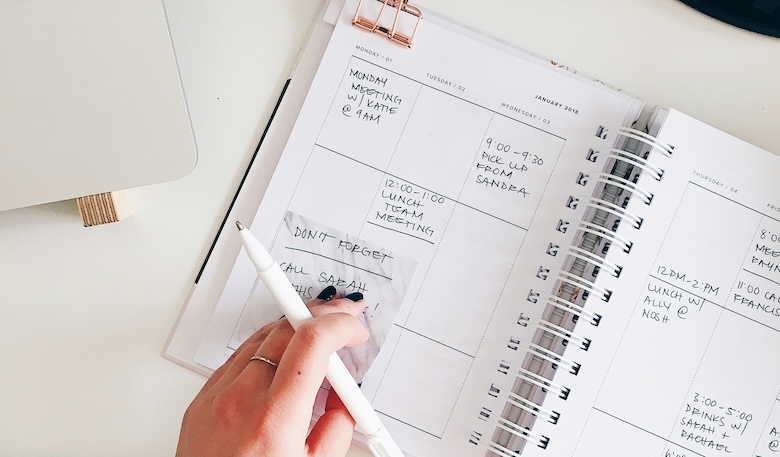 JANUARY 2018
MONDAY / 01
MONDAY
MEETING
W/ KATIE
@ 9AM
TUESDAY / 02
12:00-1:00
LUNCH
TEAM
MEETING
WEDNESDAY / 03
9:00-9:30
PICK UP
FROM
SANDRA
DON'T FORGET
CALL SARAH
THIS
!
THURSDAY / 04
12PM-2PM
LUNCH W/
ALLY @
NOSH
3:00-5:00
DRINKS W/
SARAH +
RACHAEL
6:00
FRI
8:00
MEET
11:00 CA
FRANCIS